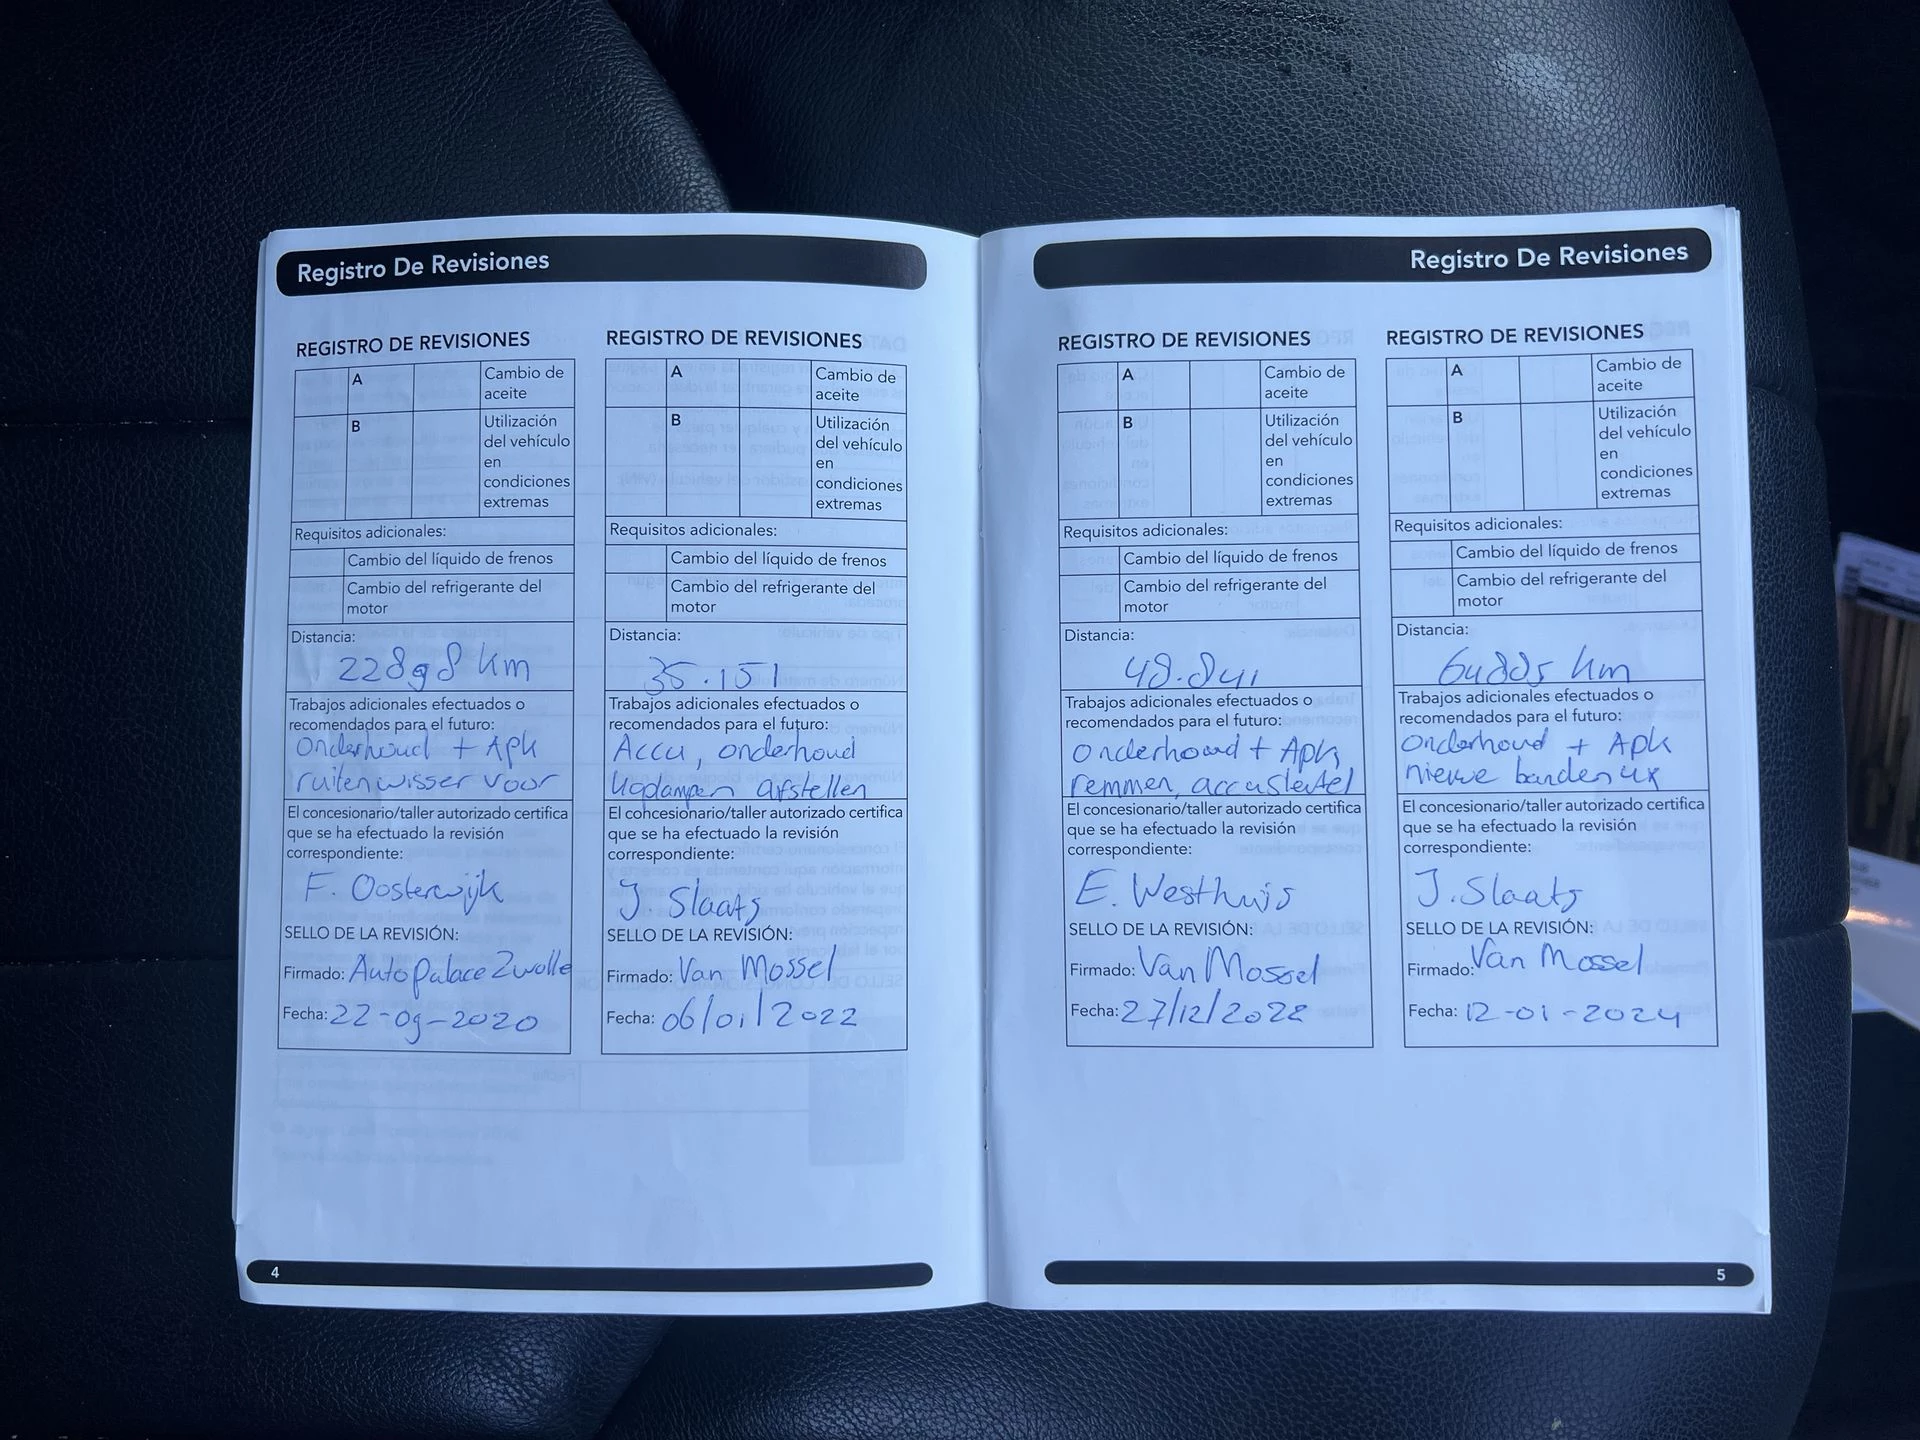 Registro De Revisiones
REGISTRO DE REVISIONES
A
Cambio de
aceite
B
Utilización
del vehículo
en
condiciones
extremas
Requisitos adicionales:
Cambio del líquido de frenos
Cambio del refrigerante del
motor
Distancia:
22898 km
Trabajos adicionales efectuados o
recomendados para el futuro:
Onderhoud + Apk
ruitenwisser voor
El concesionario/taller autorizado certifica
que se ha efectuado la revisión
correspondiente:
F. Oosterwijk
SELLO DE LA REVISIÓN:
Firmado: Auto Palace Zwolle
Fecha: 22-09-2020
REGISTRO DE REVISIONES
A
Cambio de
aceite
B
Utilización
del vehículo
en
condiciones
extremas
Requisitos adicionales:
Cambio del líquido de frenos
Cambio del refrigerante del
motor
Distancia:
35.151
Trabajos adicionales efectuados o
recomendados para el futuro:
Accu, onderhoud
Koplampen afstellen
El concesionario/taller autorizado certifica
que se ha efectuado la revisión
correspondiente:
J. Slaats
SELLO DE LA REVISIÓN:
Firmado: Van Mossel
Fecha: 06/01/2022
4
Registro De Revisiones
REGISTRO DE REVISIONES
A
Cambio de
aceite
B
Utilización
del vehículo
en
condiciones
extremas
Requisitos adicionales:
Cambio del líquido de frenos
Cambio del refrigerante del
motor
Distancia:
48.841
Trabajos adicionales efectuados o
recomendados para el futuro:
Onderhoud + Apk,
remmen, accusleutel
El concesionario/taller autorizado certifica
que se ha efectuado la revisión
correspondiente:
E. Westhuis
SELLO DE LA REVISIÓN:
Firmado: Van Mossel
Fecha: 27/12/2022
REGISTRO DE REVISIONES
A
Cambio de
aceite
B
Utilización
del vehículo
en
condiciones
extremas
Requisitos adicionales:
Cambio del líquido de frenos
Cambio del refrigerante del
motor
Distancia:
64885 km
Trabajos adicionales efectuados o
recomendados para el futuro:
Onderhoud + Apk
nieuwe banden 4x
El concesionario/taller autorizado certifica
que se ha efectuado la revisión
correspondiente:
J. Slaats
SELLO DE LA REVISIÓN:
Firmado: Van Mossel
Fecha: 12-01-2024
5